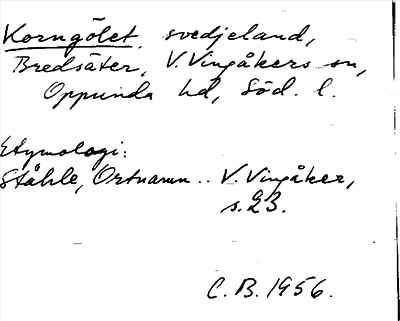 Korngölet, svedjeland,
Bredsäter, V. Vingåkers sn,
Oppunda hd, Söd. l.
Etymologi:
Ståhle, Ortnamn .. V. Vingåker,
s. 23.
C. B. 1956.